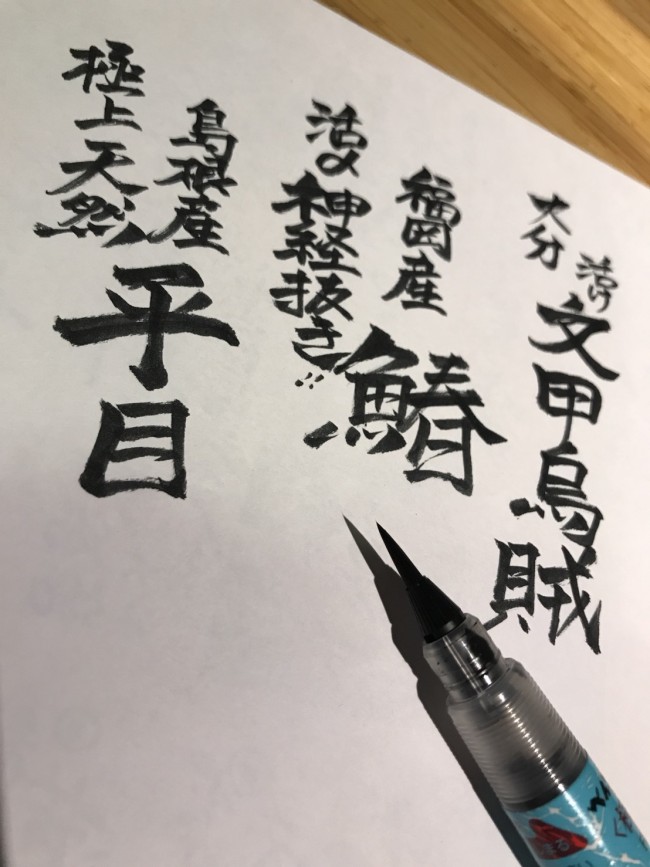 大分
活け
文甲烏賊
福岡産
活〆神経抜き!!
鰆
島根産
極上天然
平目